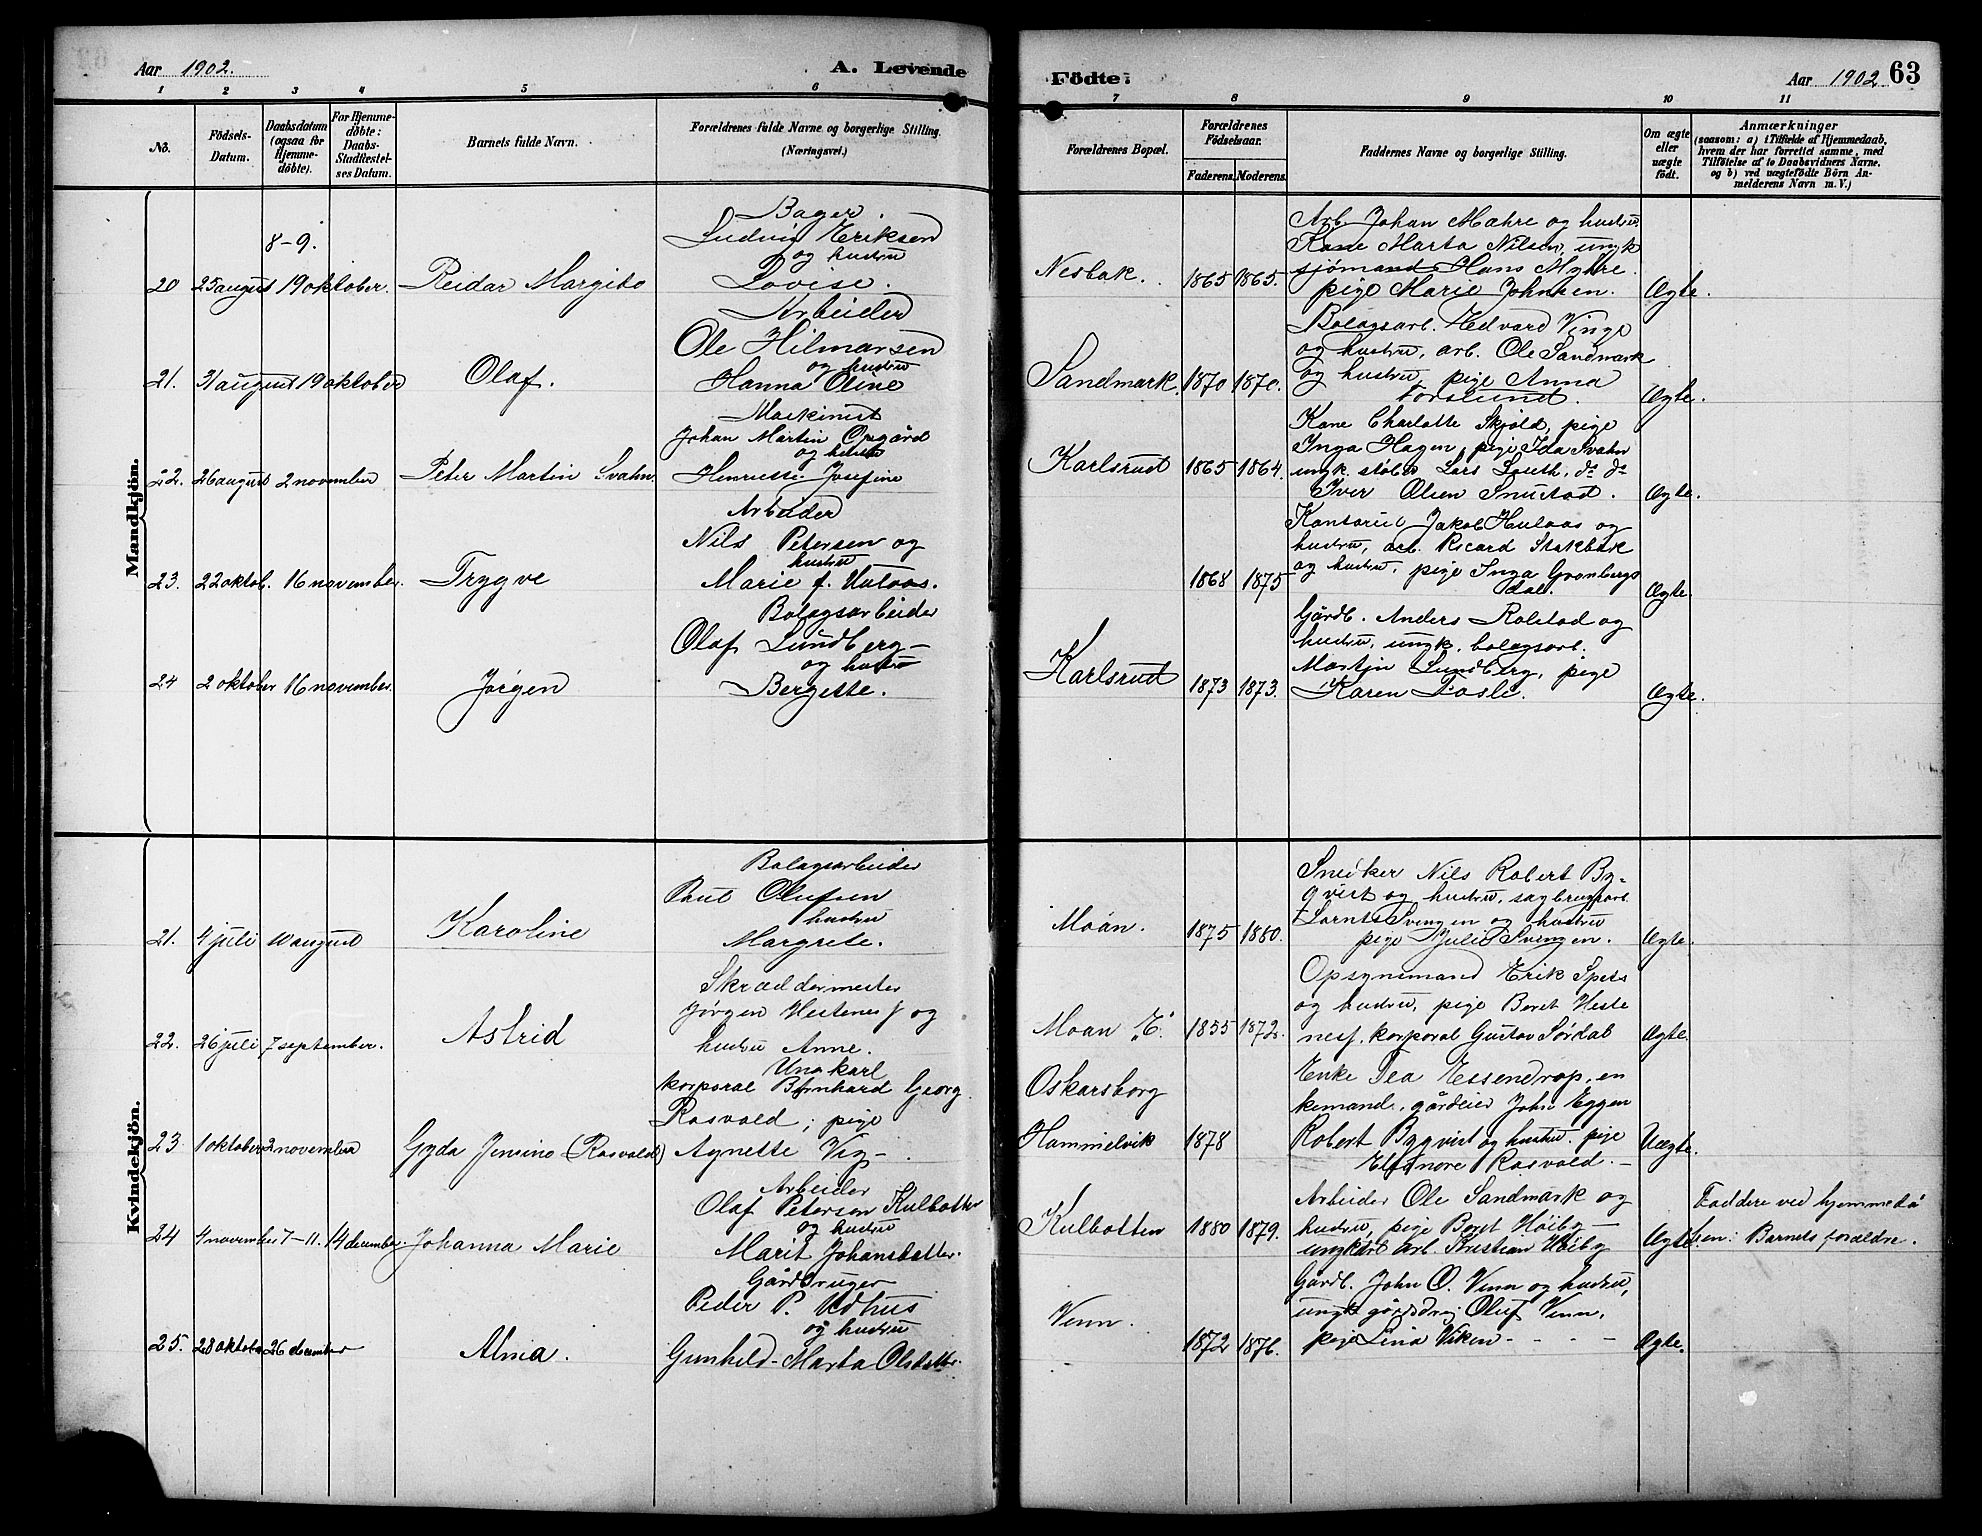 Aar 1902.
A. Levende
Födte:
Aar 1902
63
1 2 3 4 5 6
7 8 9 10 11
No.
Födsels-
Datum.
Daabsdatum
(ogsaa for
Hjemme-
døbte).
For Hjemme-
døbte:
Daabs-
Stadfæstel-
ses Datum.
Barnets fulde Navn.
Forældrenes fulde Navne og borgerlige Stilling.
(Næringsvei.)
Forældrenes Bopæl.
Forældrenes
Födselsaar.
Faderens. Moderens.
Faddernes Navne og borgerlige Stilling.
Om ægte
eller
uægte
født.
Anmærkninger
(saasom: a) i Tilfælde af Hjemmedaab,
hvem der har forrettet samme, med
Tilføielse af to Daabsvidners Navne,
og b) ved uægtefødte Börn An-
melderens Navn m. V.)
Mandkjön.
8-9.
20 25 august 19 oktober. Reidar Margido
Bager.
Ludvig Eriksen
og hustru
Lovise.
Nesbak. 1865 1865.
Arb. Johan Mæhre og hustru
Kone Marta Nilsen, ungk
sjömand Hans Myhre.
pige Marie Johnsen.
Ægte.
21. 31 august 19 oktober Olaf.
Arbeider
Ole Hilmarsen
og hustru
Hanna Oline
Sandmark. 1870 1870.
Bolagsarb. Hedvard Vinge
og hustru, arb. Ole Sandmark
og hustru, pige Anna
Forslund.
Ægte.
22. 26 august 2 november Peter Martin Svahn
Maskinist
Johan Martin
og hustru
Henriette Josefine
Karlsrud 1865 1864.
Kone Charlotte Skjöld, pige
Inga Hagen, pige Ida Svahn
ungk. støber Lars
Iver Olsen Snustad.
Ægte.
23. 22 oktob. 16 november. Trygve
Arbeider
Nils Petersen og
hustru
Marie f.
1868 1875
Jakob og
hustru, arb. Ricard
og hustru, pige Inga Grønbergs
dal.
Ægte.
24 2 oktober 16 november. Jørgen
Bolagsarbeider
Olaf Lundberg
og hustru
Bergette.
Karlsrud 1873 1873.
Gårdb. Anders Rolstad og
hustru, ungk. bolagsarb.
Martin Lundberg, pige
Karen Fosli.
Ægte.
Kvindekjön.
21. 4 juli 10 august Karoline
Bolagsarbeider
Paul Olufsen
hustru
Margrete.
Moan. 1875 1880.
Snedker Nils Robert By-
qvist og hustru, sagbrugsarb.
Svingen og hustru
pige Julie Svingen.
Ægte.
22. 26 juli 7 september. Astrid
Skræddermester
Jørgen Hestenes og
hustru Anne.
Moan „E." 1855 1872.
Opsynsmand Erik Spets
og hustru, pige Beret Heste
nes, korporal Gustav Sørdal
Ægte.
23. 1 oktober 2 november Gyda Jensine (Rosvold)
Ungkarl
korporal Bernhard Georg
Rosvold; pige
Agnette Vig.
Oskarsborg
Hammelvik 1878
Enke Tea Essendrop, en
kemand, gårdeier John Eggen
Robert Bygvist og hustru. pige
Elinore Rosvold.
Uægte.
24 4 november 7-11. 14 december. Johanna Marie
Arbeider
Olaf Peterson Kulbotten
og hustru
Marit Johansdatter
Kulbotten 1880 1879.
Arbeider Ole Sandmark og
hustru, pige Beret Höiby
ungkarl arb. Kristian Höiby
Ægte.
Faddere ved hjemmedå
ben: Barnets forældre.
25. 28 oktober 26 december Alma.
Gårdbruger
Peder P. Udhus
og hustru
Gunhild Marta Olsdatter
Venn. 1872 1876.
Gårdb. John O. Venn og hustru,
ungk gårddr Oluf Venn,
pige Lina Viken - - - -
Ægte.